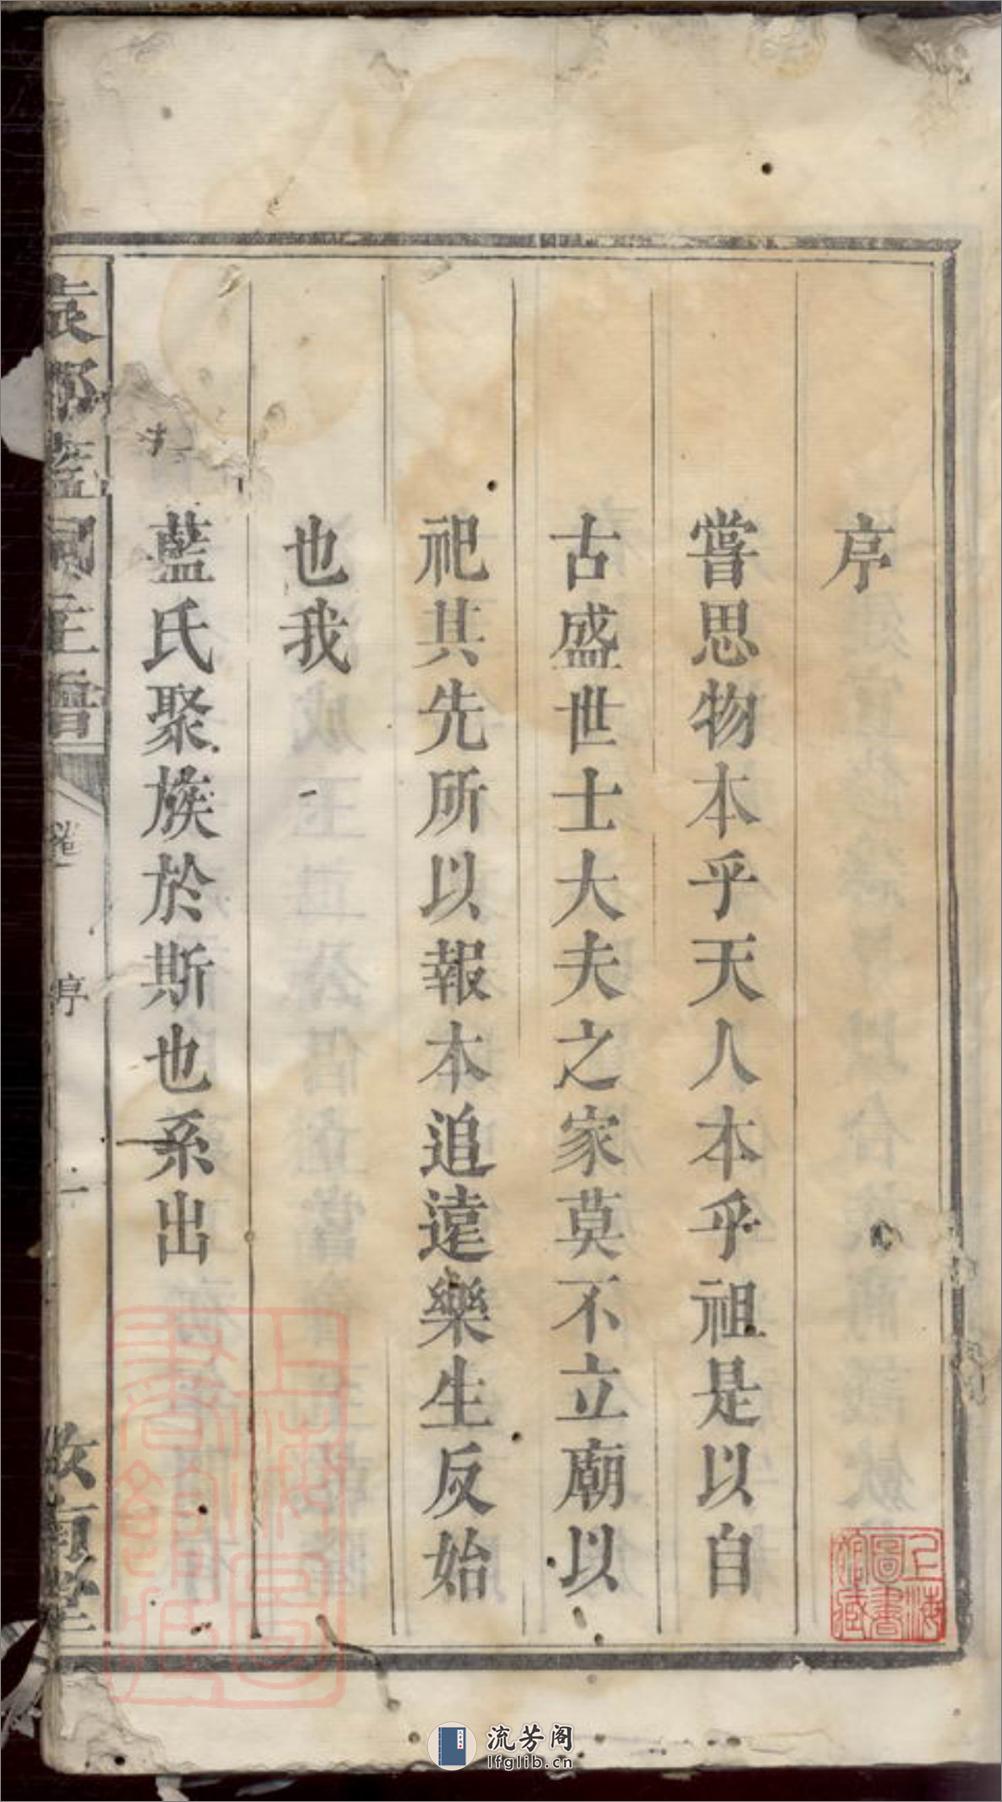 序
嘗思物本乎天人本乎祖是以自
古盛世士大夫之家莫不立廟以
祀其先所以報本追遠樂生反始
也我
藍氏聚族於斯也系出
袁郡藍祠主譜
序
一
上海圖書館藏
上海圖書館藏
流芳阁
lfglib.cn